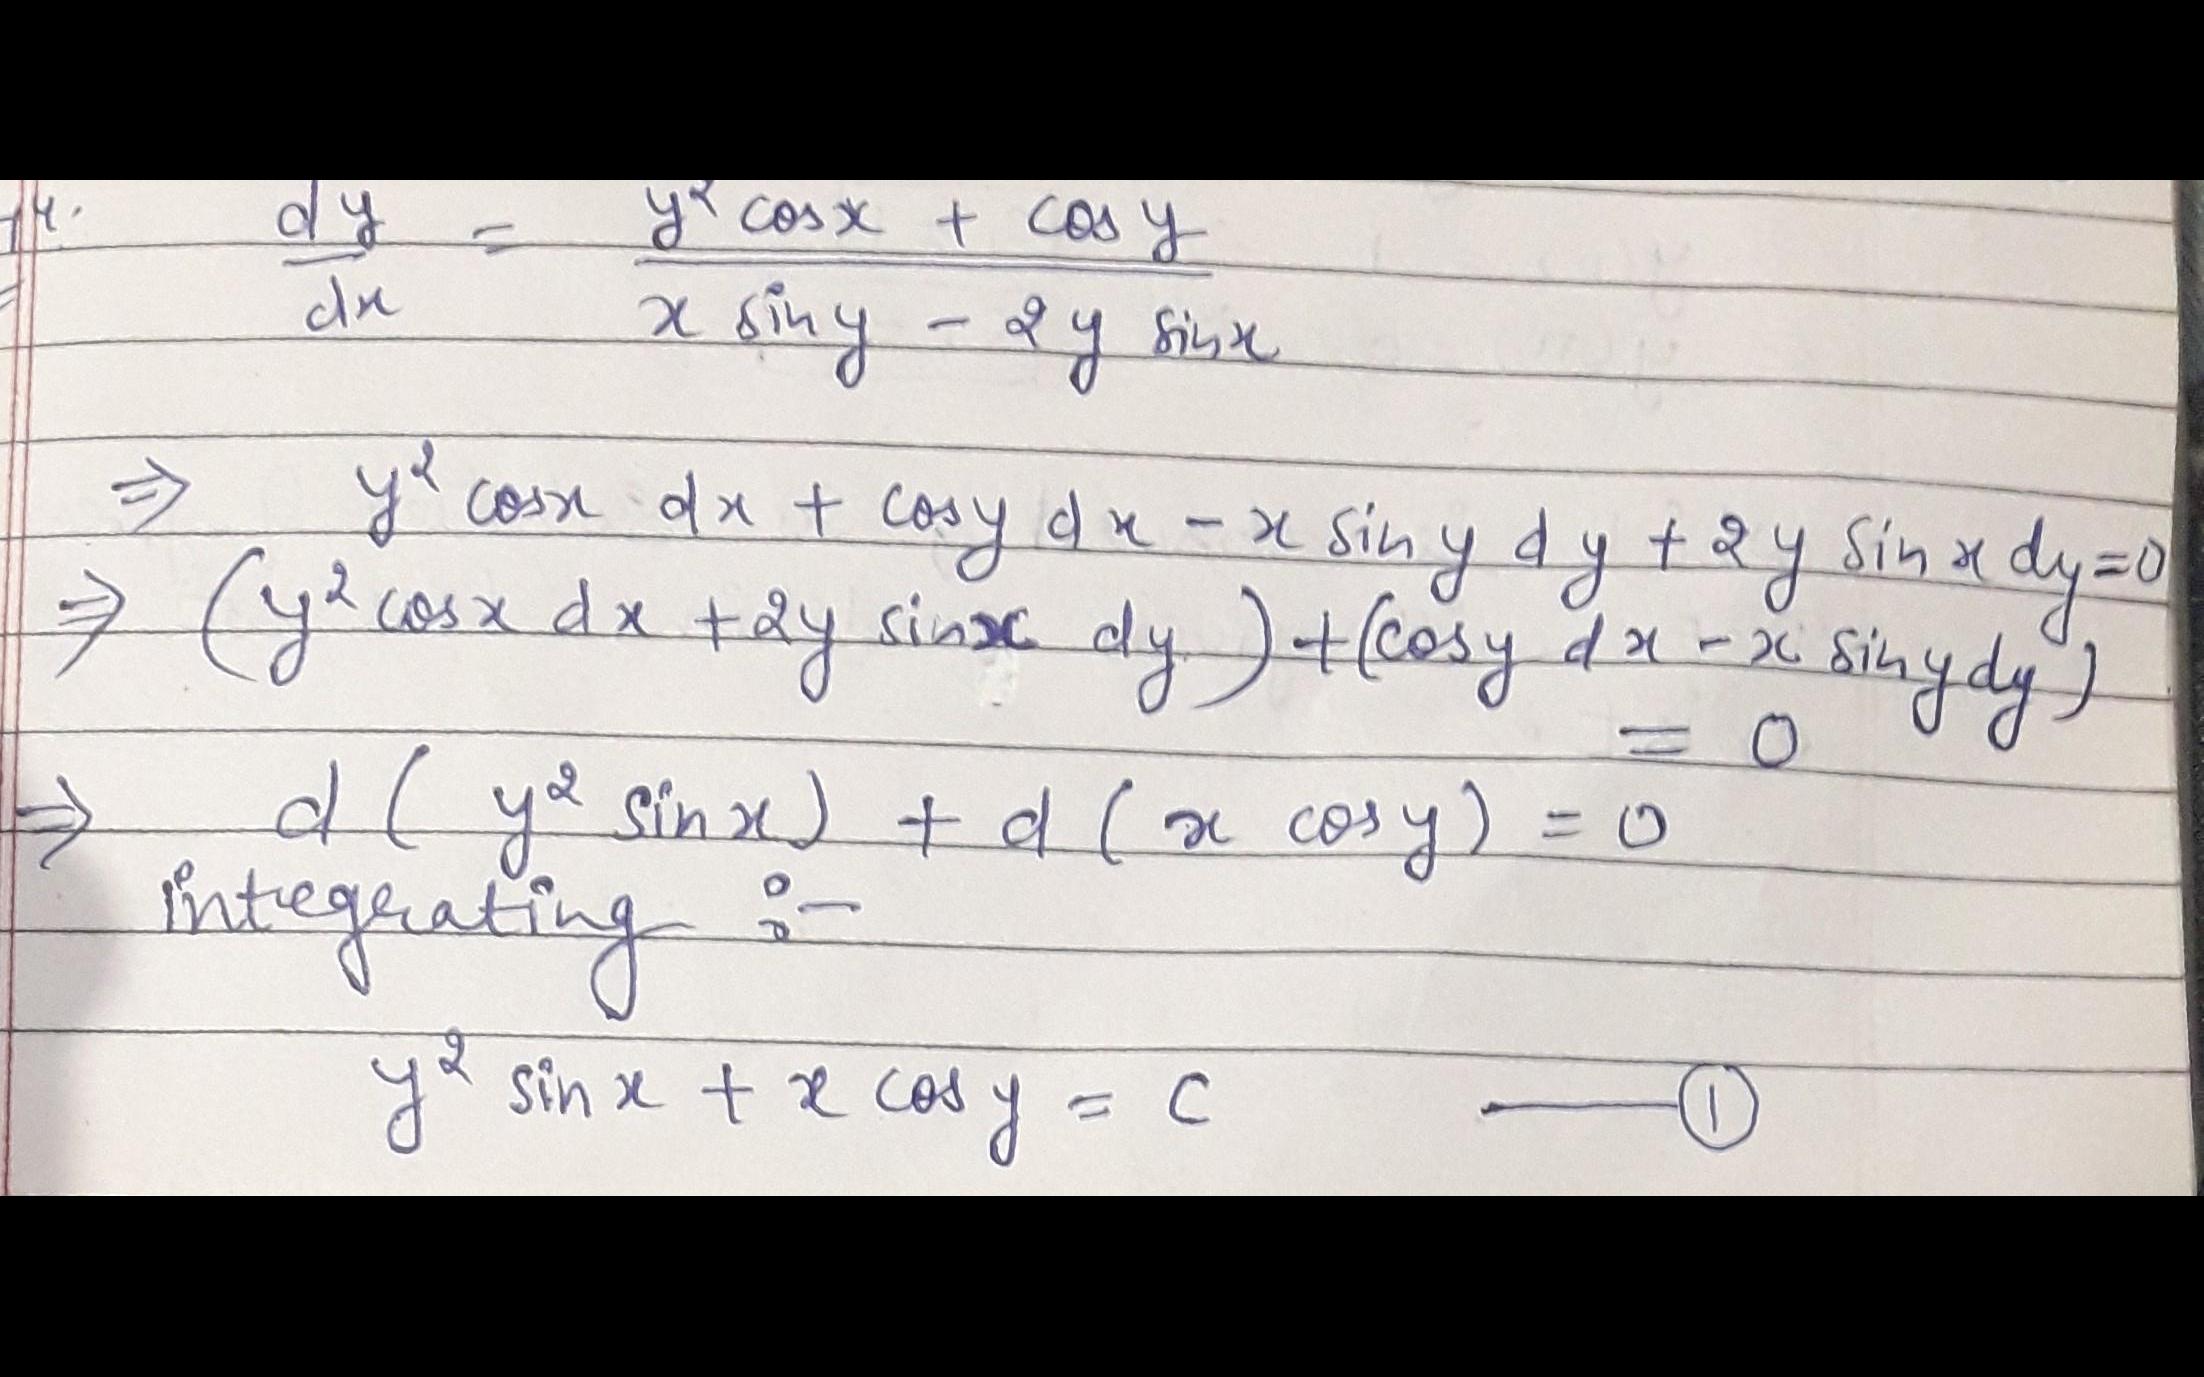 14. dy/dx = (y² cosx + cosy)/(x siny - 2y sinx)
⇒ y² cosx dx + cosy dx - x siny dy + 2y sinx dy = 0
⇒ (y² cosx dx + 2y sinx dy) + (cosy dx - x siny dy)
= 0
⇒ d(y² sinx) + d(x cosy) = 0
integrating :-
y² sinx + x cosy = c —— ①